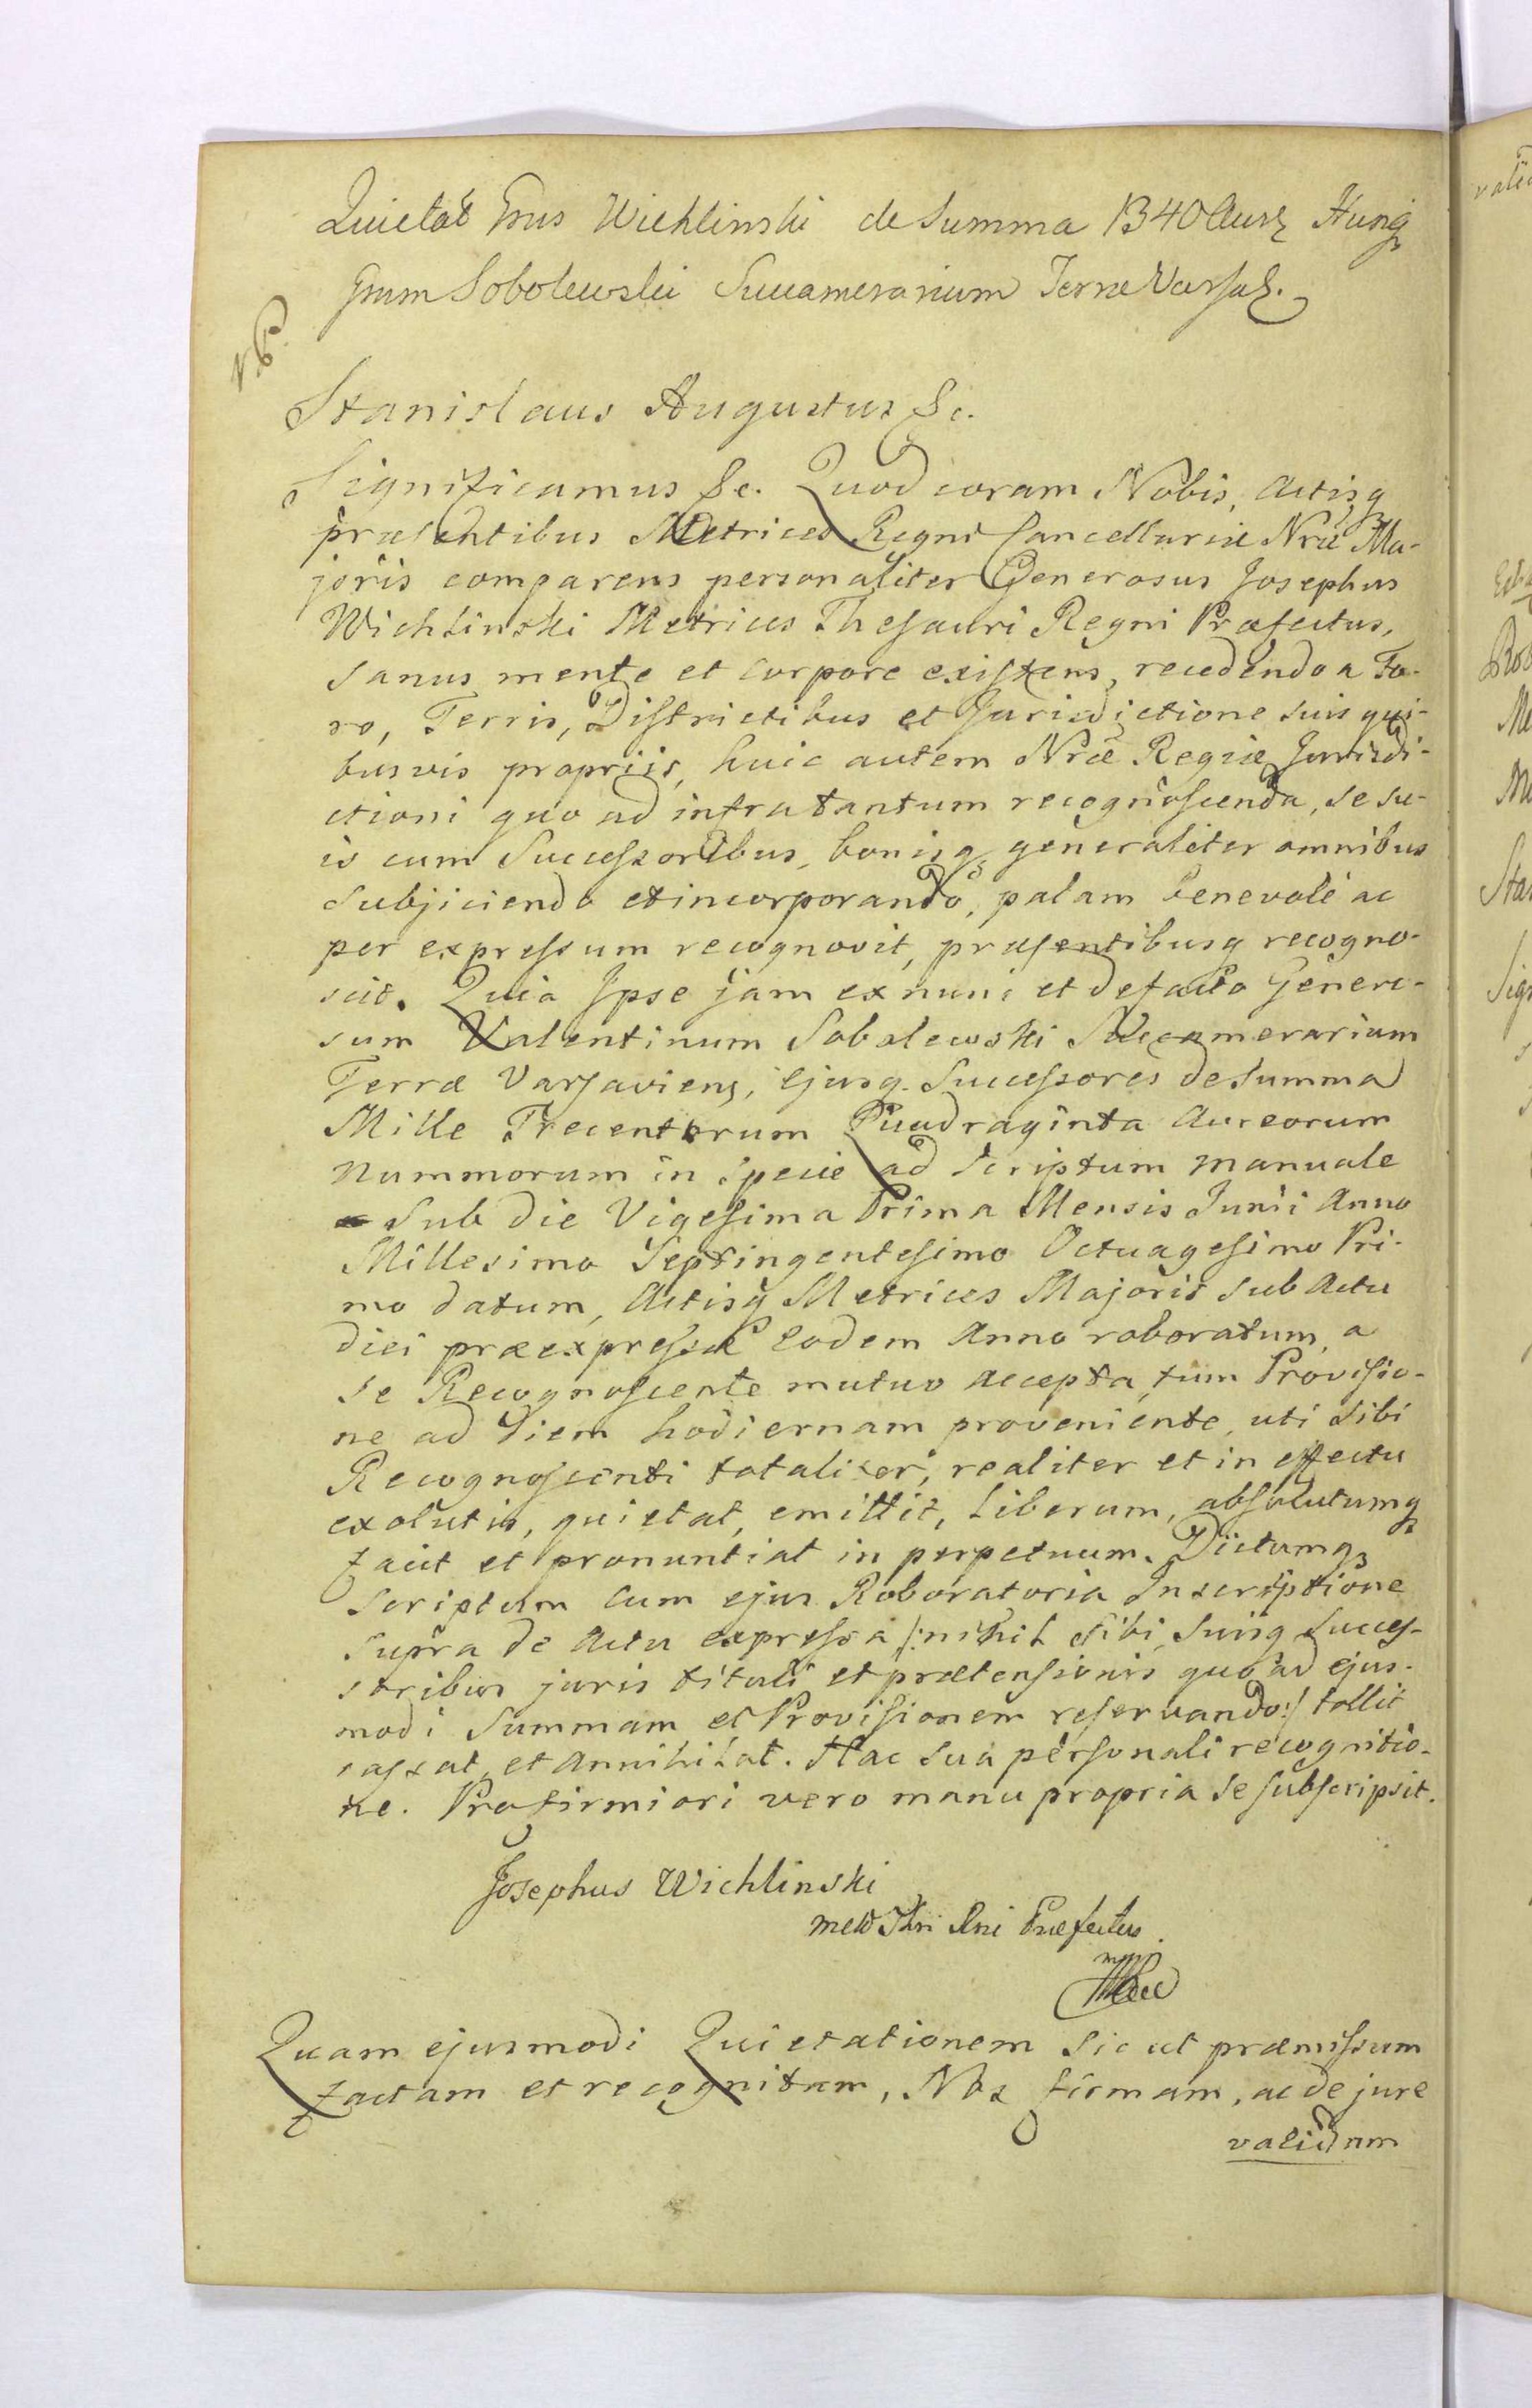 Quietat Grus Wichlinski de Summa 1340 Aurz Hungz
Grum Sobolewski Succamerarium Terræ Varsaz.
Stanislaus Augustus &c.
Significamus &c. Quod coram Nobis, Actisq
præsentibus Metrices Regni Cancellariæ Nræ Ma-
joris comparens personaliter Generosus Josephus
Wichlinski Metrices Thesauri Regni Præfectus,
sanus mente et corpore existens, recedendo a Fo-
ro, Terris, Districtibus et Jurisdictione suis qui-
busvis propriis, huic autem Nræ Regiæ Jurisdi-
ctioni quo ad infra tantum recognoscenda, se su-
is cum Successoribus, bonisq generaliter omnibus
subjiciendo et incorporando, palam benevole ac
per expressum recognovit, præsentibusq recogno-
scit. Quia Ipse jam ex nunc et de facto Genero-
sum Valentinum Sobolewski Succamerarium
Terræ Varsaviens, ejusq. Successores de Summa
Mille Trecentorum Quadraginta Aureorum
Nummorum in specie ad scriptum manuale
Sub die Vigesima Prima Mensis Junii Anno
Millesimo Septingentesimo Octuagesimo Pri-
mo datum, Actisq Metrices Majoris sub Actu
diei præexpressæ eodem Anno roboratum, a
se Recognoscente mutuo accepta, tum Provisio-
ne ad diem hodiernam proveniente, uti sibi
Recognoscenti totaliter, realiter et in effectu
exolutis, quietat, emittit, liberum, absolutumq
facit et pronuntiat in perpetuum. Dictumq
scriptum cum ejus Roboratoria Inscriptione
supra de Actu expressa /: nihil sibi, suisq Succes-
soribus juris tituli et prætensionis quo ad ejus-
modi Summam et Provisionem reservando :/ tollit
cassat, et annihilat. Hac sua personali recognitio-
ne. Pro firmiori vero manu propria se subscripsit.
Josephus Wichlinski
Præfectus
mpp
Quam ejusmodi Quietationem sic ut præmissum
factam et recognitam, Nos firmam, ac de jure
validam